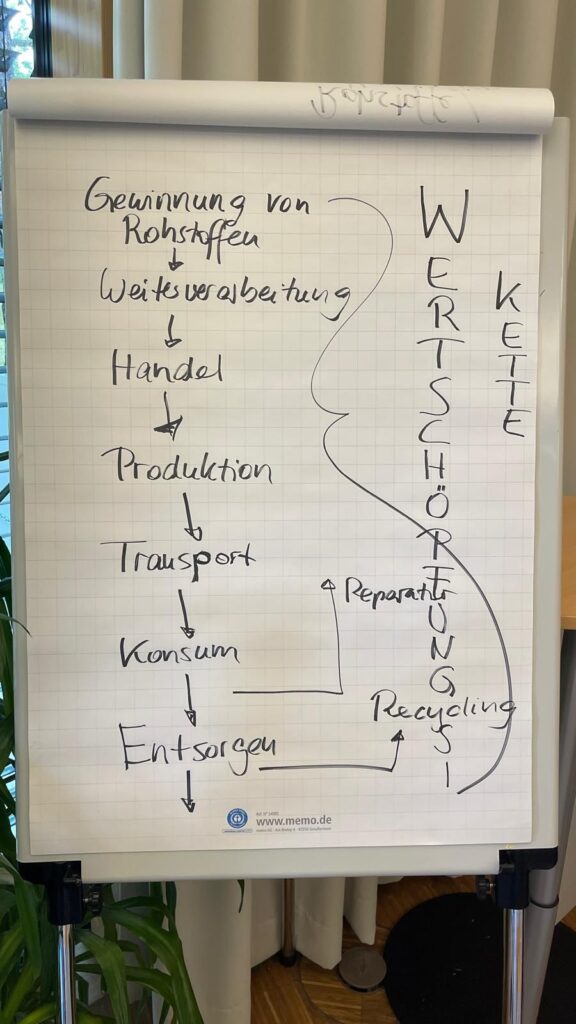 Rohstoffe
Gewinnung von
Rohstoffen
Weiterverarbeitung
Handel
Produktion
Transport
Konsum
Entsorgen
Reparatur
Recycling
WERTSCHÖPFUNGS-
KETTE
www.memo.de